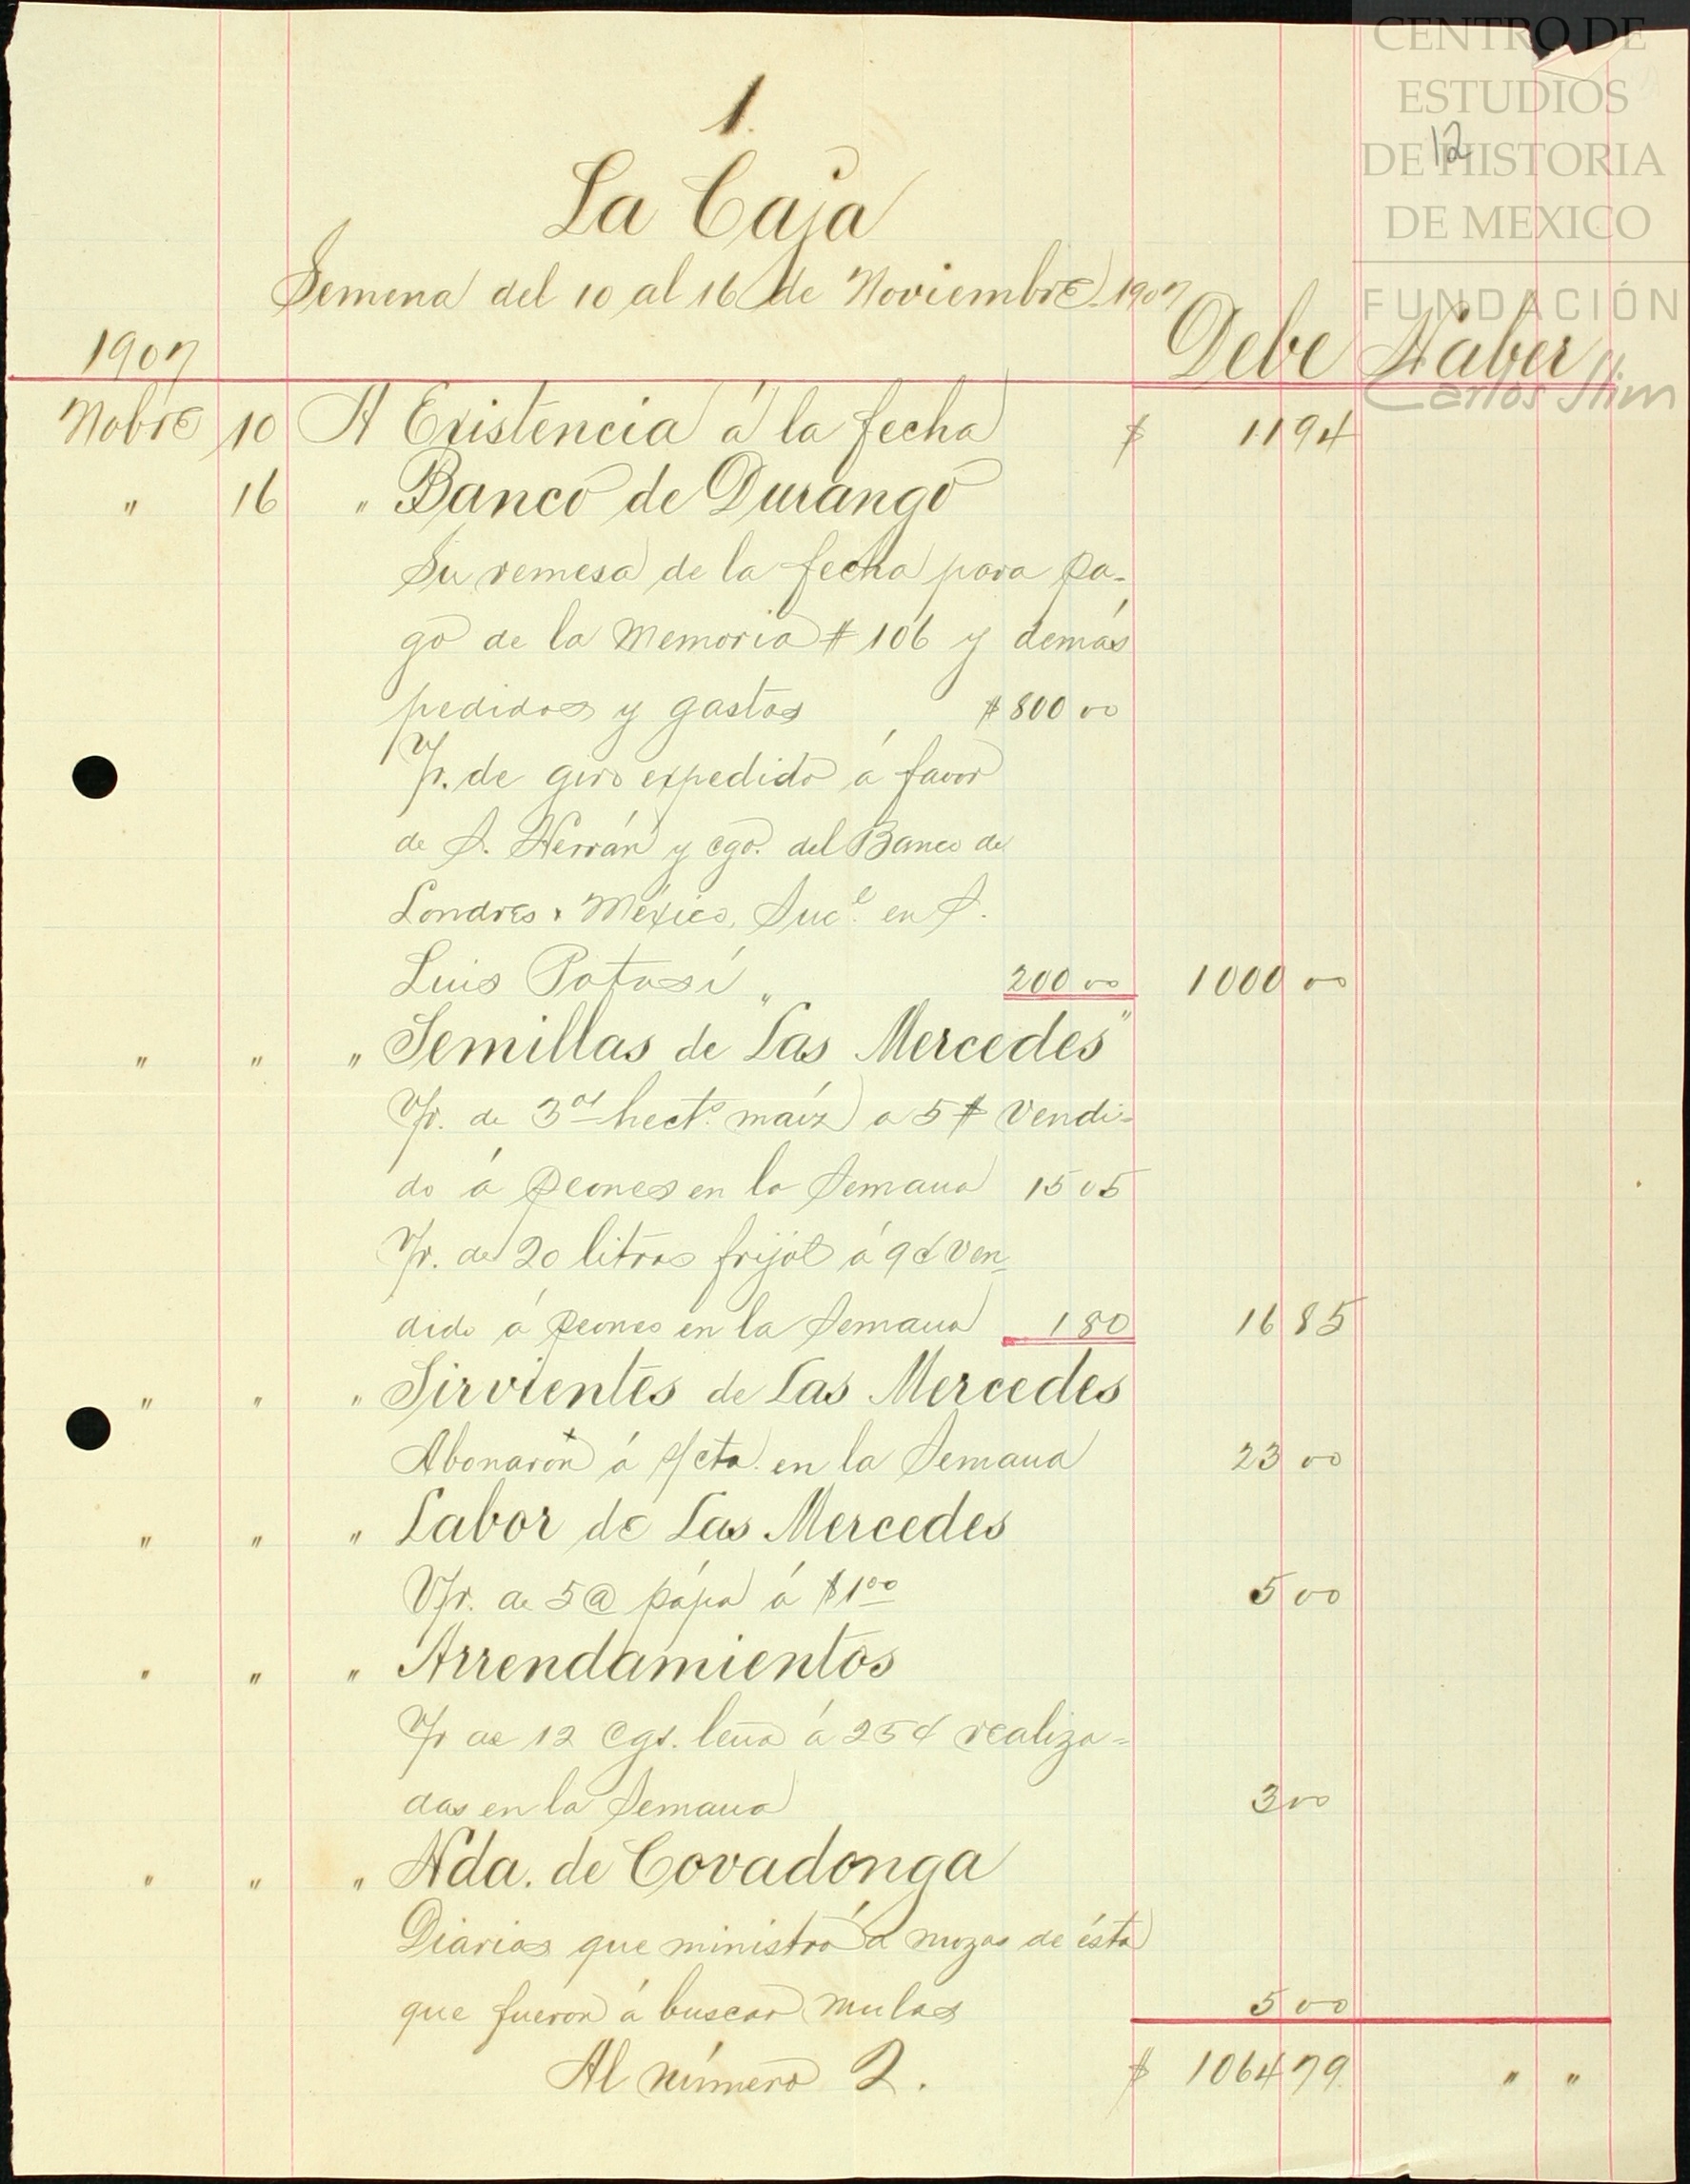 CENTRO DE
ESTUDIOS
DE HISTORIA
DE MEXICO
FUNDACIÓN
Carlos Slim
12
1.
La Caja
Semena del 10 al 16 de Noviembre 1907
1907 Debe Haber
Nobre 10 A Existencia á la fecha $ 11 94
" 16 " Banco de Durango
Su remesa de la fecha para pa-
go de la memoria # 106 y demás
pedidos y gastos $ 800 00
Vr. de giro expedido á favor
de S. Herrán y cgo. del Banco de
Londres y México, Sucl. en S.
Luis Potosí " 200 00 1000 00
" " " Semillas de Las Mercedes"
Vr. de 3 01 hects. maíz a 5 $ vendi-
do á peones en la Semana 15 05
Vr. de 20 litros frijol á 9¢ ven-
dido á peones en la Semana 1 80 16 85
" " " Sirvientes de Las Mercedes
Abonaron á s/cta. en la Semana 23 00
" " " Labor de Las Mercedes
Vr. de 5 @ papa á $1 00 5 00
" " " Arrendamientos
Vr de 12 cgs. leña á 25¢ realiza-
das en la Semana 3 00
" " " Hda. de Covadonga
Diarios que ministró á mozos de ésta
que fueron á buscar mulas 5 00
Al número 2. $ 1064 79 " "